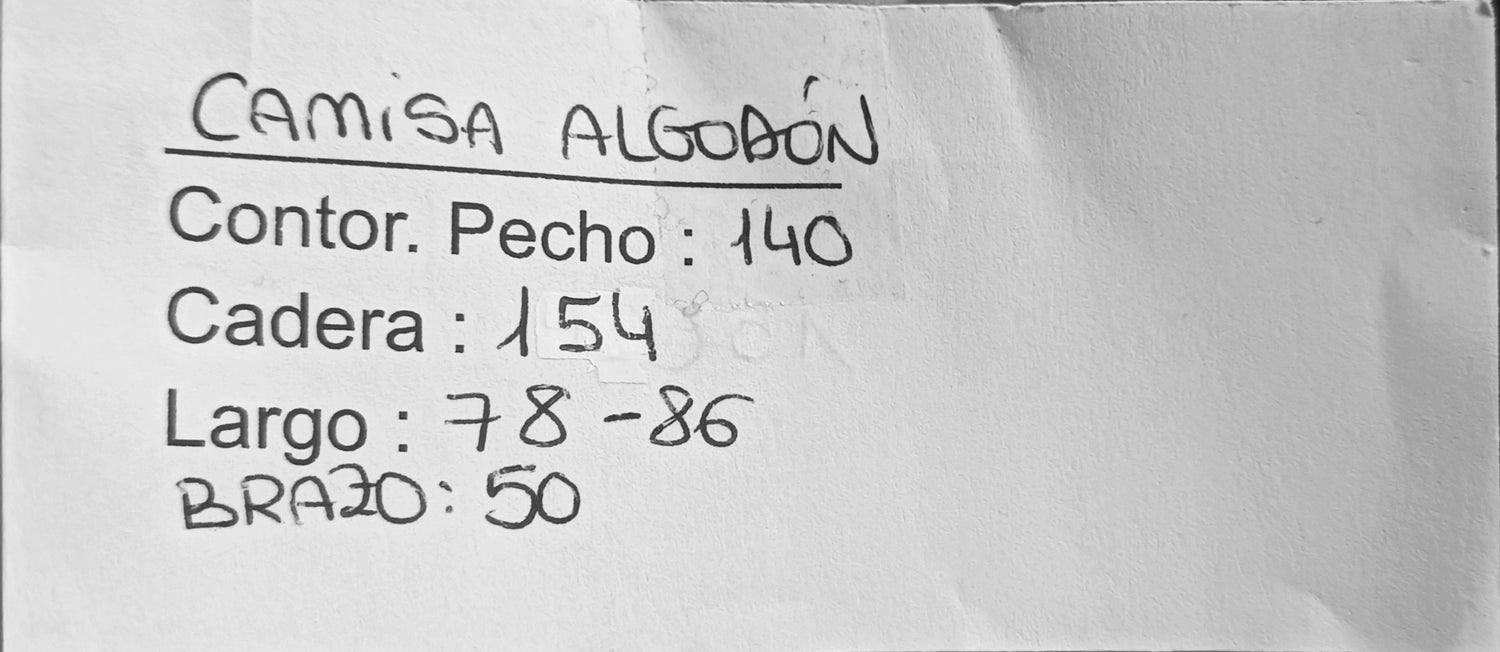 CAMiSA ALGODÓN
Contor. Pecho : 140
Cadera : 154
Largo : 78 - 86
BRAZO: 50